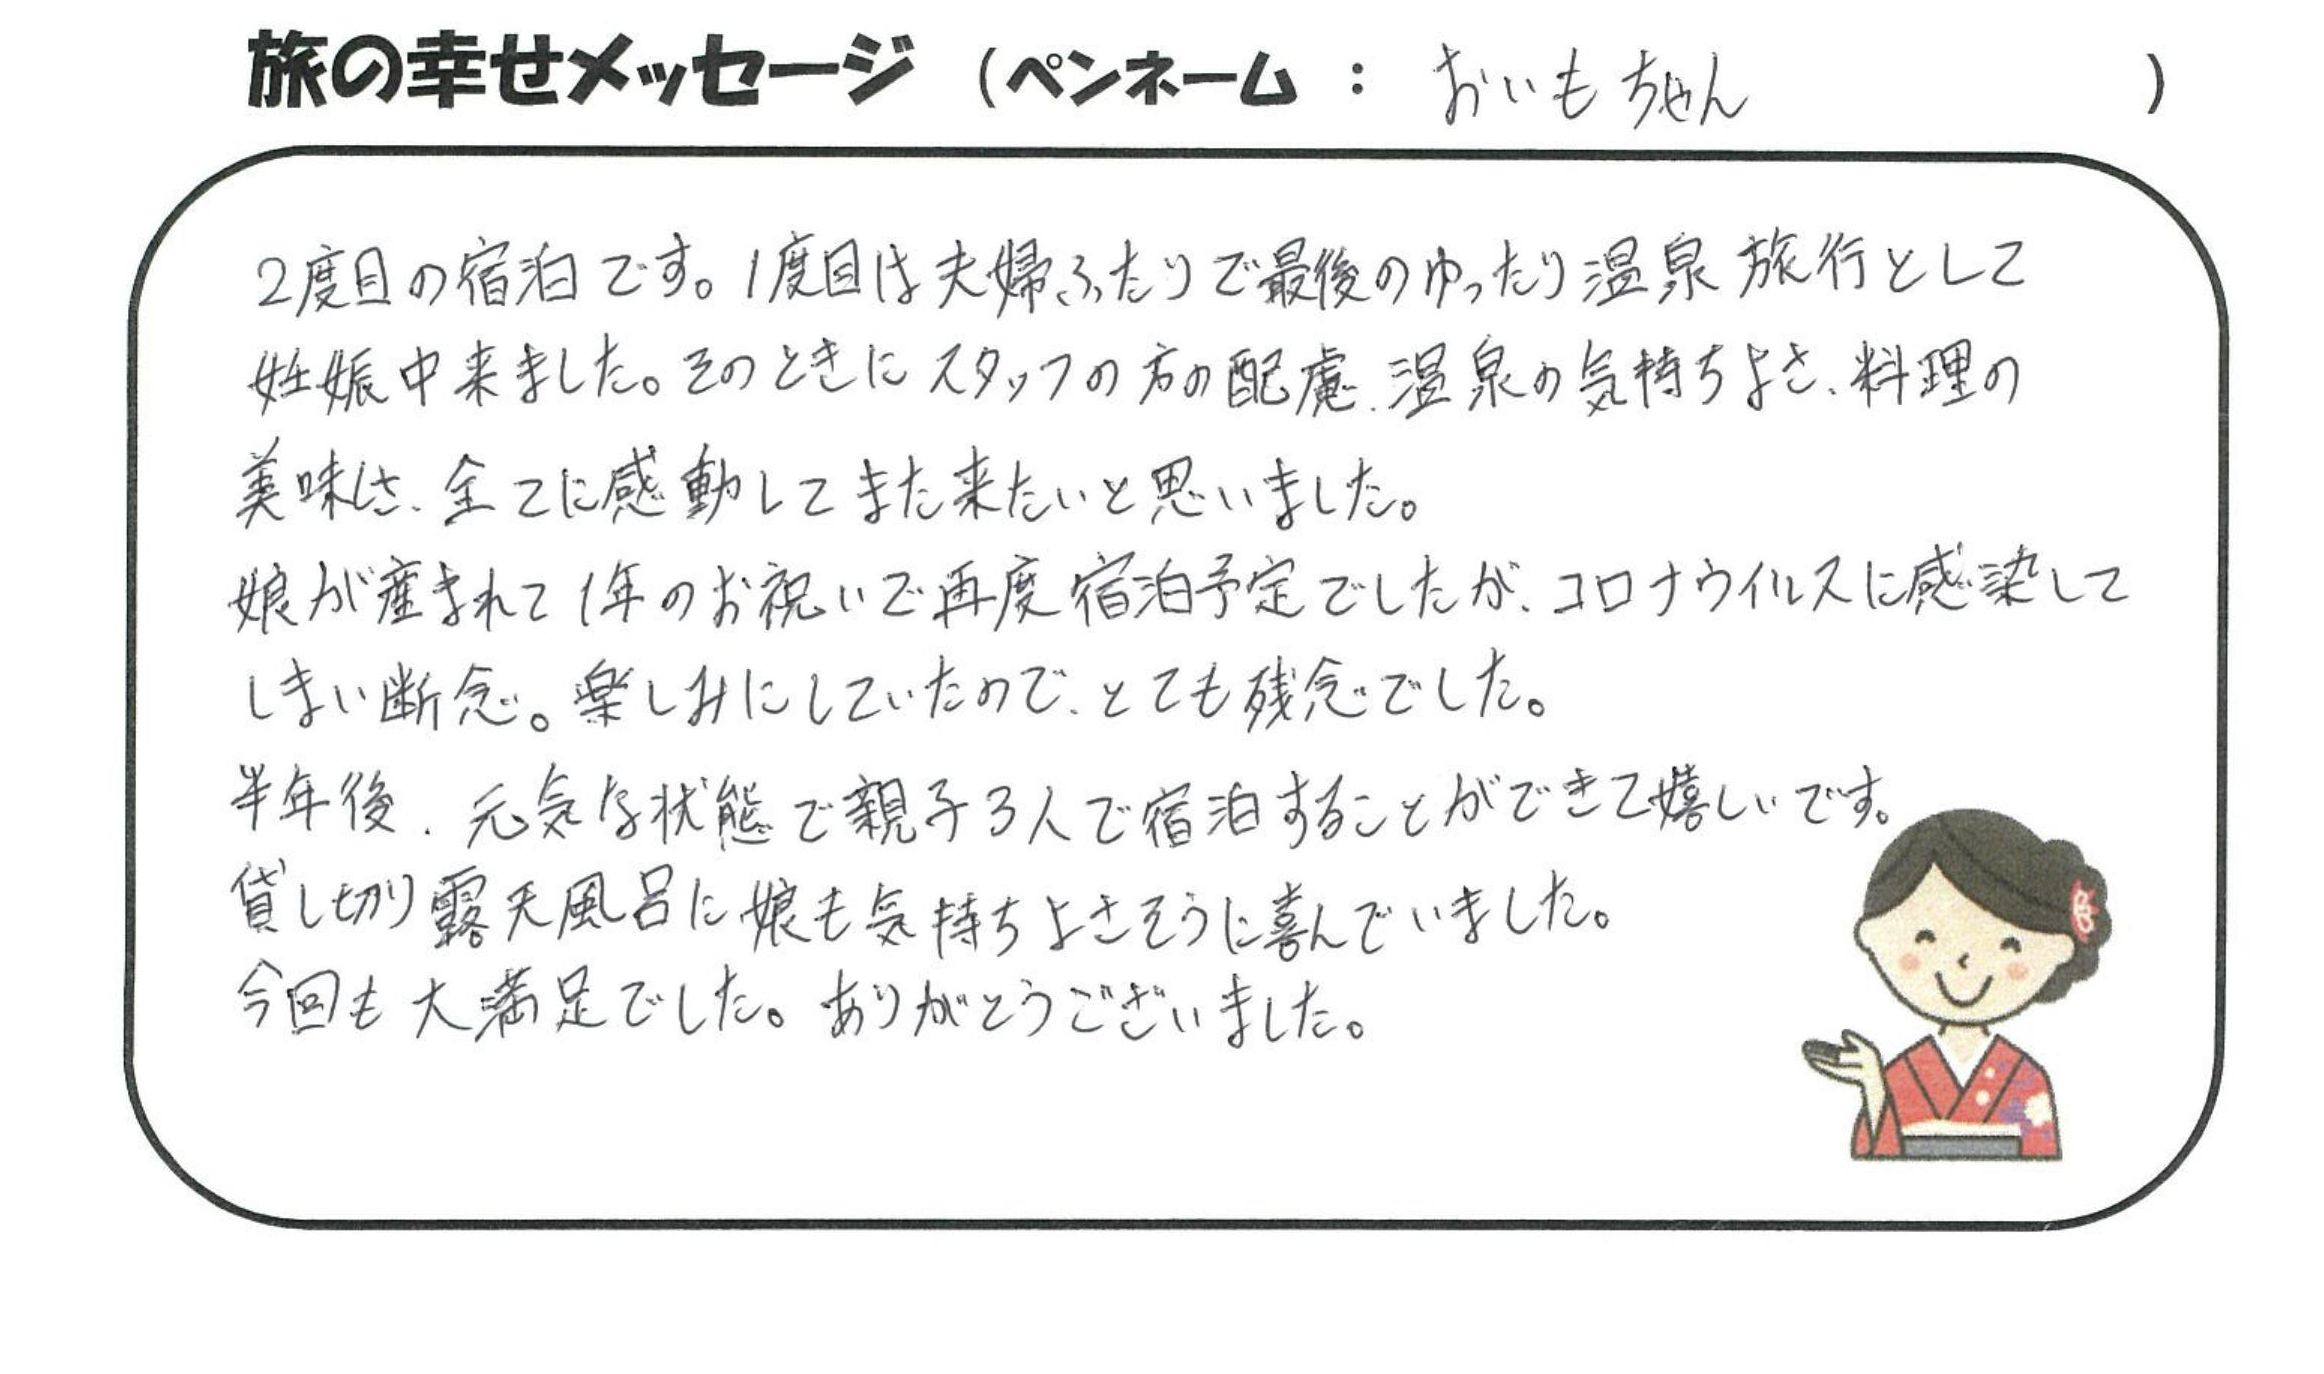 旅の幸せメッセージ (ペンネーム : おいもちゃん )
2度目の宿泊です。1度目は夫婦ふたりで最後のゆったり温泉旅行として
妊娠中来ました。そのときにスタッフの方の配慮、温泉の気持ちよさ、料理の
美味しさ、全てに感動してまた来たいと思いました。
娘が産まれて1年のお祝いで再度宿泊予定でしたが、コロナウイルスに感染して
しまい断念。楽しみにしていたので、とても残念でした。
半年後、元気な状態で親子3人で宿泊することができて嬉しいです。
貸し切り露天風呂に娘も気持ちよさそうに喜んでいました。
今回も大満足でした。ありがとうございました。